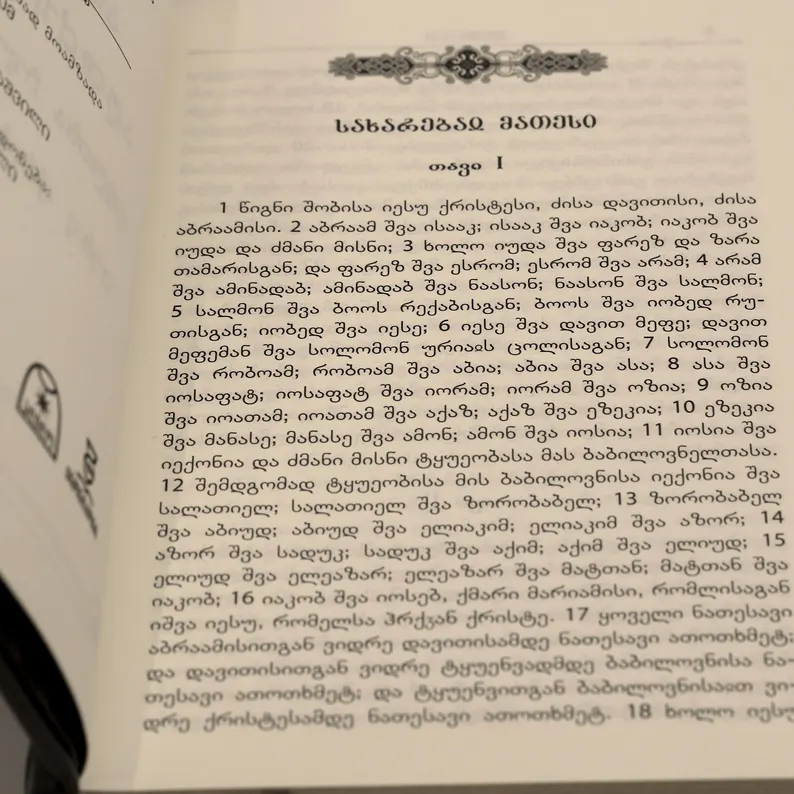 სახარებაჲ მათესი
თავი I
1 წიგნი შობისა იესუ ქრისტესი, ძისა დავითისი, ძისა
აბრაამისი. 2 აბრაამ შვა ისააკ; ისააკ შვა იაკობ; იაკობ შვა
იუდა და ძმანი მისნი; 3 ხოლო იუდა შვა ფარეზ და ზარა
თამარისგან; და ფარეზ შვა ესრომ; ესრომ შვა არამ; 4 არამ
შვა ამინადაბ; ამინადაბ შვა ნაასონ; ნაასონ შვა სალმონ;
5 სალმონ შვა ბოოს რექაბისგან; ბოოს შვა იობედ რუ-
თისგან; იობედ შვა იესე; 6 იესე შვა დავით მეფე; დავით
მეფემან შვა სოლომონ ურიაჲს ცოლისაგან; 7 სოლომონ
შვა რობოამ; რობოამ შვა აბია; აბია შვა ასა; 8 ასა შვა
იოსაფატ; იოსაფატ შვა იორამ; იორამ შვა ოზია; 9 ოზია
შვა იოათამ; იოათამ შვა აქაზ; აქაზ შვა ეზეკია; 10 ეზეკია
შვა მანასე; მანასე შვა ამონ; ამონ შვა იოსია; 11 იოსია შვა
იექონია და ძმანი მისნი ტყუეობასა მას ბაბილოვნელთასა.
12 შემდგომად ტყუეობისა მის ბაბილოვნისა იექონია შვა
სალათიელ; სალათიელ შვა ზორობაბელ; 13 ზორობაბელ
შვა აბიუდ; აბიუდ შვა ელიაკიმ; ელიაკიმ შვა აზორ; 14
აზორ შვა სადუკ; სადუკ შვა აქიმ; აქიმ შვა ელიუდ; 15
ელიუდ შვა ელეაზარ; ელეაზარ შვა მატთან; მატთან შვა
იაკობ; 16 იაკობ შვა იოსებ, ქმარი მარიამისი, რომლისაგან
იშვა იესუ, რომელსა ჰრქჳან ქრისტე. 17 ყოველი ნათესავი
აბრაამისითგან ვიდრე დავითისამდე ნათესავი ათოთხმეტ;
და დავითისითგან ვიდრე ტყუენვადმდე ბაბილოვნისა ნა-
თესავი ათოთხმეტ; და ტყუენვითგან ბაბილოვნისაჲთ ვი-
დრე ქრისტესამდე ნათესავი ათოთხმეტ. 18 ხოლო იესუ